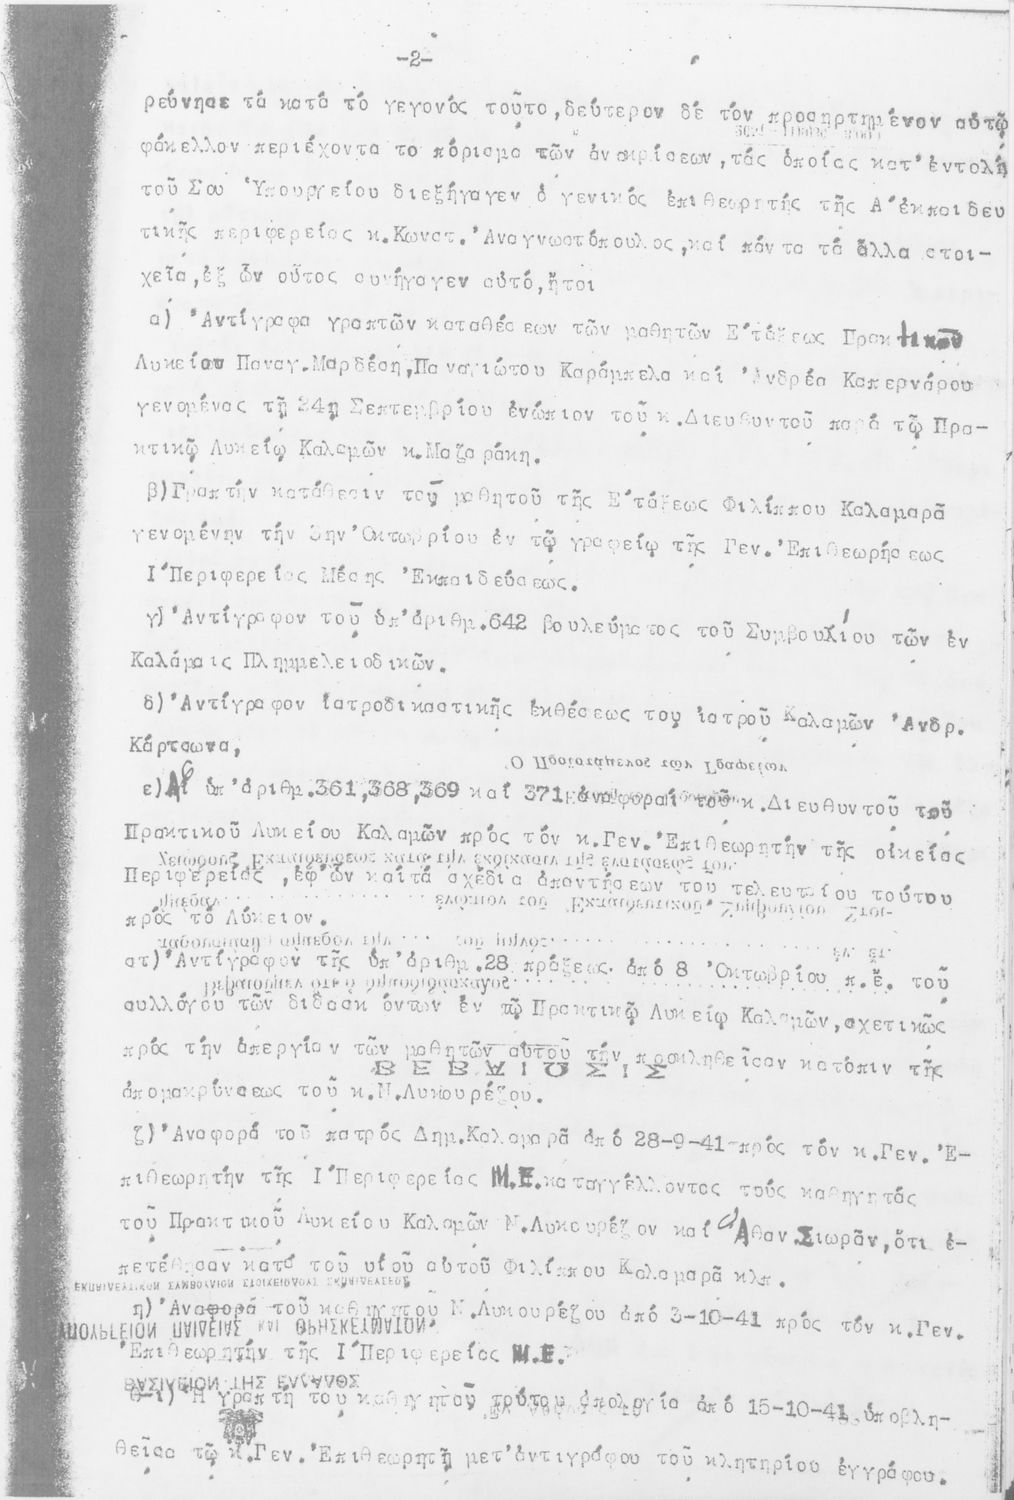 -2-
ρεύνησε τά κατά τό γεγονός τοῦτο,δεύτερον δέ τόν προσηρτημένον αὐτῷ
φάκελλον περιέχοντα το πόρισμα τῶν ἀνακρίσεων,τάς ὁποίας κατ'ἐντολήν
τοῦ Σου Ὑπουργείου διεξήγαγεν ὁ γενικός ἐπιθεωρητής τῆς Α'ἐκπαιδευ
τικῆς περιφερείας κ.Κωνστ.'Αναγνωστόπουλος,καί πάντα τά ἄλλα στοι-
χεῖα,ἐξ ὧν οὗτος συνήγαγεν αὐτό,ἤτοι
α) 'Αντίγραφα γραπτῶν καταθέσεων τῶν μαθητῶν Ε'τάξεως Πρακτικοῦ
Λυκείου Παναγ.Μαρδέση,Παναγιώτου Καράμπελα καί 'Ανδρέα Καπερνάρου
γενομένας τῇ 24η Σεπτεμβρίου ἐνώπιον τοῦ κ.Διευθυντοῦ παρά τῷ Πρα-
κτικῷ Λυκείῳ Καλαμῶν κ.Μαζαράκη.
β)Γραπτήν κατάθεσιν τοῦ μαθητοῦ τῆς Ε'τάξεως Φιλίππου Καλαμαρᾶ
γενομένην τήν 3ην'Οκτωβρίου ἐν τῷ γραφείῳ τῆς Γεν.'Επιθεωρήσεως
Ι'Περιφερείας Μέσης 'Εκπαιδεύσεως.
γ)'Αντίγραφον τοῦ ὑπ'ἀριθμ.642 βουλεύματος τοῦ Συμβουλίου τῶν ἐν
Καλάμαις Πλημμελειοδικῶν.
δ)'Αντίγραφον ἰατροδικαστικῆς ἐκθέσεως του ἰατροῦ Καλαμῶν 'Ανδρ.
Κάρτσωνα,
Ὁ Προϊστάμενος τῶν Γραφείων
ε)Αἱ ὑπ'ἀριθμ.361,368,369 καί 371 ἀναφοραί τοῦ κ.Διευθυντοῦ τοῦ
Πρακτικοῦ Λυκείου Καλαμῶν πρός τόν κ.Γεν.'Επιθεωρητήν τῆς οἰκείας
Περιφερείας ,ἐφ'ὧν καίτά σχέδια ἀπαντήσεων του τελευταίου τούτου
πρός τό Λύκειον.
στ)'Αντίγραφον τῆς ὑπ'ἀριθμ.28 πράξεως ἀπό 8 'Οκτωβρίου π.ἔ. τοῦ
συλλόγου τῶν διδασκόντων ἐν τῷ Πρακτικῷ Λυκείῳ Καλαμῶν,σχετικῶς
πρός τήν ἀπεργίαν τῶν μαθητῶν αὐτοῦ τήν προκληθεῖσαν κατόπιν τῆς
ΒΕΒΑΙΩΣΙΣ
ἀπομακρύνσεως τοῦ κ.Ν.Λυκουρέζου.
ζ)'Αναφορά τοῦ πατρός Δημ.Καλαμαρᾶ ἀπό 28-9-41 πρός τόν κ.Γεν.'Ε-
πιθεωρητήν τῆς Ι'Περιφερείας Μ.Ε.καταγγέλλοντος τούς καθηγητάς
τοῦ Πρακτικοῦ Λυκείου Καλαμῶν Ν.Λυκουρέζον καί Ἀθαν.Σιωρᾶν,ὅτι ἐ-
πετέθησαν κατά τοῦ υἱοῦ αὐτοῦ Φιλίππου Καλαμαρᾶ κλπ.
η)'Αναφορά τοῦ καθηγητοῦ Ν.Λυκουρέζου ἀπό 3-10-41 πρός τόν κ.Γεν.
ΥΠΟΥΡΓΕΙΟΝ ΠΑΙΔΕΙΑΣ ΚΑΙ ΘΡΗΣΚΕΥΜΑΤΩΝ
'Επιθεωρητήν τῆς Ι'Περιφερείας Μ.Ε.
ΒΑΣΙΛΕΙΟΝ ΤΗΣ ΕΛΛΑΔΟΣ
θ-ι) Ἡ γραπτή του καθηγητοῦ τούτου ἀπολογία ἀπό 15-10-41 ὑποβλη-
θεῖσα τῷ κ.Γεν.'Επιθεωρητῇ μετ'ἀντιγράφου τοῦ κλητηρίου ἐγγράφου.